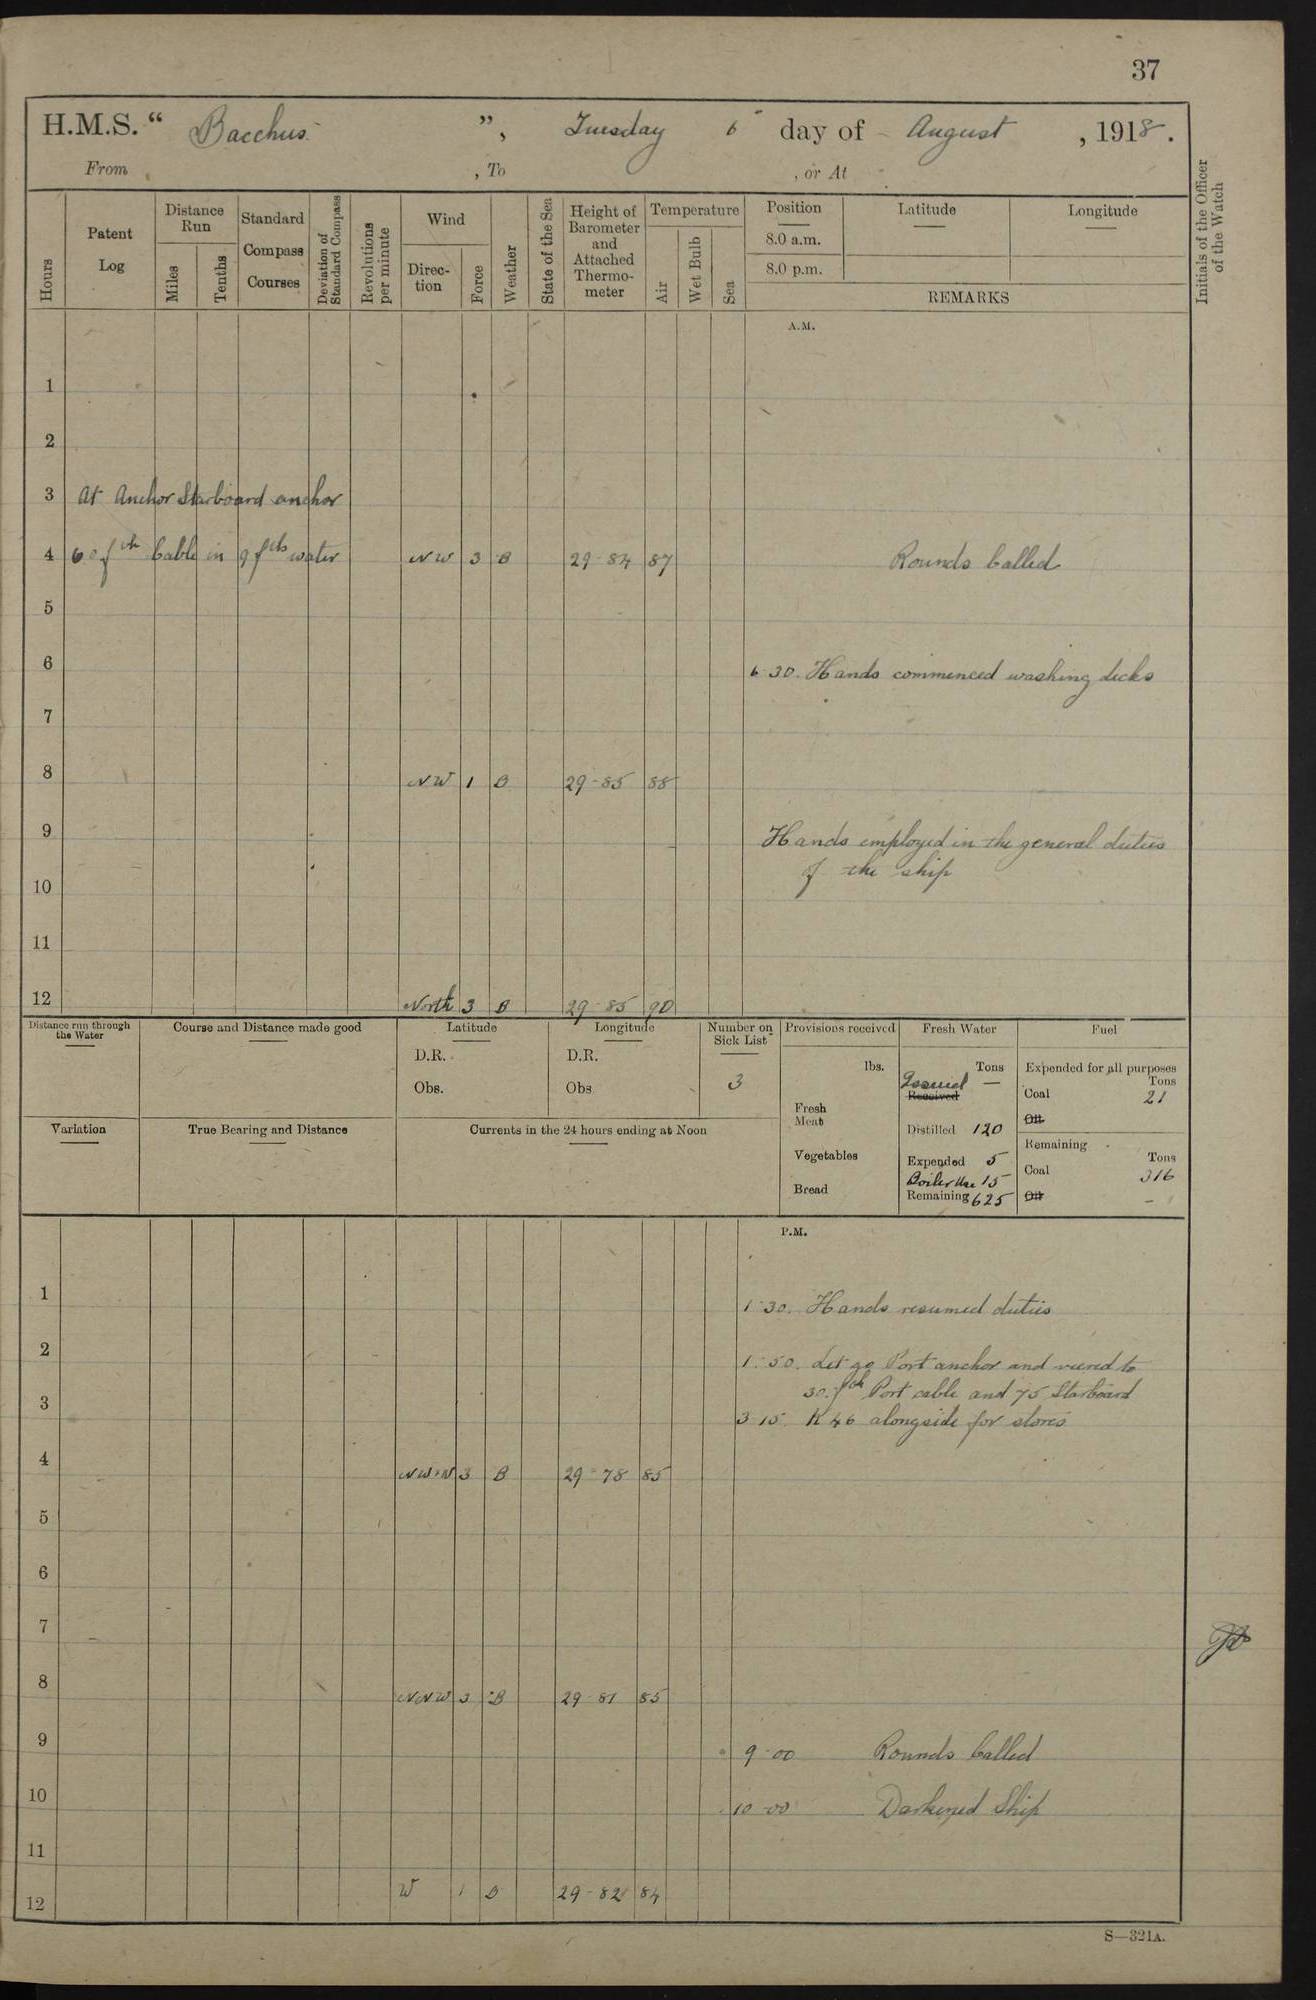 37
H.M.S. “ Bacchus ”, Tuesday 6th day of August , 1918.
From , To , or At
Hours
Patent Log
Distance Run
Miles
Tenths
Standard Compass Courses
Deviation of Standard Compass
Revolutions per minute
Wind
Direction
Force
Weather
State of the Sea
Height of Barometer and Attached Thermometer
Temperature
Air
Wet Bulb
Sea
Position
8.0 a.m.
8.0 p.m.
Latitude
Longitude
REMARKS
Initials of the Officer of the Watch
A.M.
1
2
3 At Anchor Starboard anchor
4 60 fth Cable in 9 fths water NW 3 B 29-84 87 Rounds Called
5
6 6-30. Hands commenced washing decks
7
8 NW 1 B 29-85 88
9 Hands employed in the general duties
of the ship
10
11
12 North 3 B 29-85 90
Distance run through the Water
Course and Distance made good
Latitude
D.R.
Obs.
Longitude
D.R.
Obs
Number on Sick List
3
Provisions received
lbs.
Fresh Meat
Vegetables
Bread
Fresh Water
Tons
Issued —
Received
Distilled 120
Expended 5
Boiler Use 15
Remaining 625
Fuel
Expended for all purposes
Tons
Coal 21
Oil
Remaining
Tons
Coal 316
Oil –
Variation
True Bearing and Distance
Currents in the 24 hours ending at Noon
P.M.
1 1-30. Hands resumed duties
2 1-50. Let go Port anchor and veered to
30 fth Port cable and 75 Starboard
3 3-15. K 46 alongside for stores
4 NW-N 3 B 29-78 85
5
6
7
8 NNW 3 B 29-81 85
9 9-00 Rounds Called
10 10-00 Darkened Ship
11
12 W 1 B 29-82 84
S—321A.